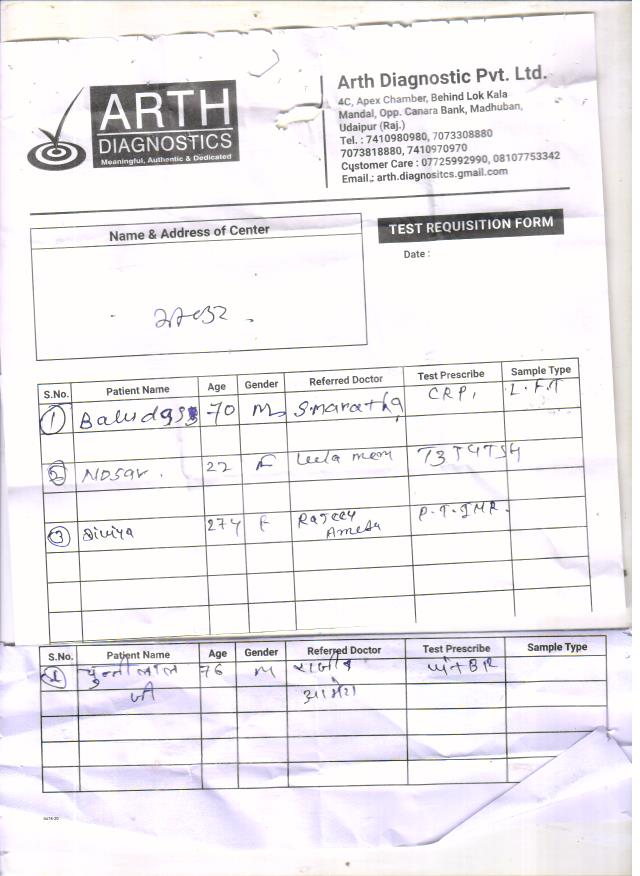 ARTH
DIAGNOSTICS
Meaningful, Authentic & Dedicated
Arth Diagnostic Pvt. Ltd.
4C, Apex Chamber, Behind Lok Kala
Mandal, Opp. Canara Bank, Madhuban,
Udaipur (Raj.)
Tel. : 7410980980, 7073308880
7073818880, 7410970970
Customer Care : 07725992990, 08107753342
Email.: arth.diagnositcs.gmail.com
Name & Address of Center
TEST REQUISITION FORM
Date :
S.No. Patient Name Age Gender Referred Doctor Test Prescribe Sample Type
1 70 M CRP, L.F.T
2 22 F Leela mem T3 T4 TSH
3 Diviya 27y F Rajeev P.T. INR.
Ameta
S.No. Patient Name Age Gender Referred Doctor Test Prescribe Sample Type
चुन्नीलाल 76 M राजीव
जी आमेटा